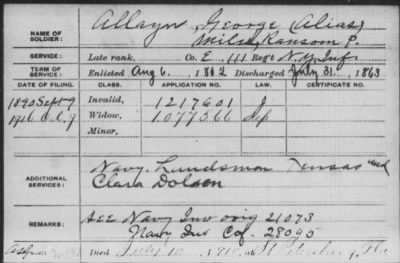 Allayn, George (Alias)
NAME OF SOLDIER: Milse, Ransom P.
SERVICE: Late rank, Co. E, 111 Reg't N.Y. Inf.
TERM OF SERVICE: Enlisted Aug 6, 1862 Discharged July 31, 1863
DATE OF FILING. CLASS. APPLICATION NO. LAW. CERTIFICATE NO.
1890 Sept 9 Invalid, 1217601 J
1916 Oct. 9 Widow, 1077366
Minor,
ADDITIONAL SERVICES: Navy. Landsman Tensas and
Clara Dolsen
REMARKS: See Navy Inv orig 21073
Navy Inv Cf. 28095
Died July 10, 191 at St Petersburg, Fla